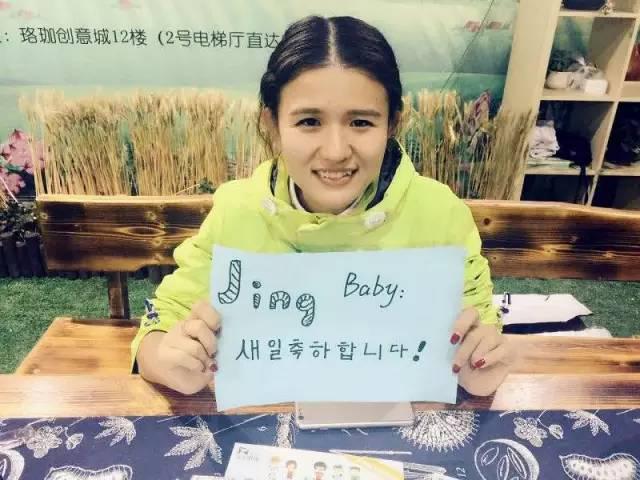 ：珞珈创意城12楼（2号电梯厅直达
Jing Baby:
새일축하합니다!